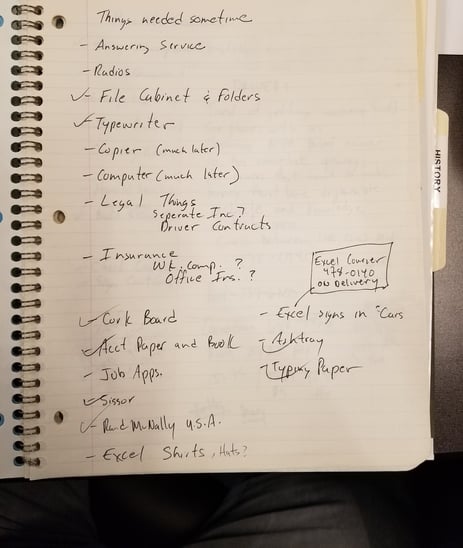 Things needed sometime
- Answering Service
- Radios
✓- File Cabinet & Folders
✓- Typewriter
- Copier (much later)
- Computer (much later)
- Legal Things
Seperate Inc?
Driver Contracts
- Insurance
Wk. Comp. ?
Office Ins. ?
Excel Courier
478-0140
on Delivery
✓- Cork Board
- Excel signs in "Cars
✓- Acct Paper and Book
✓- Ashtray
- Job Apps.
✓- Typing Paper
✓- Sissor
✓- Rand McNally U.S.A.
- Excel Shirts, Hats?
HISTORY